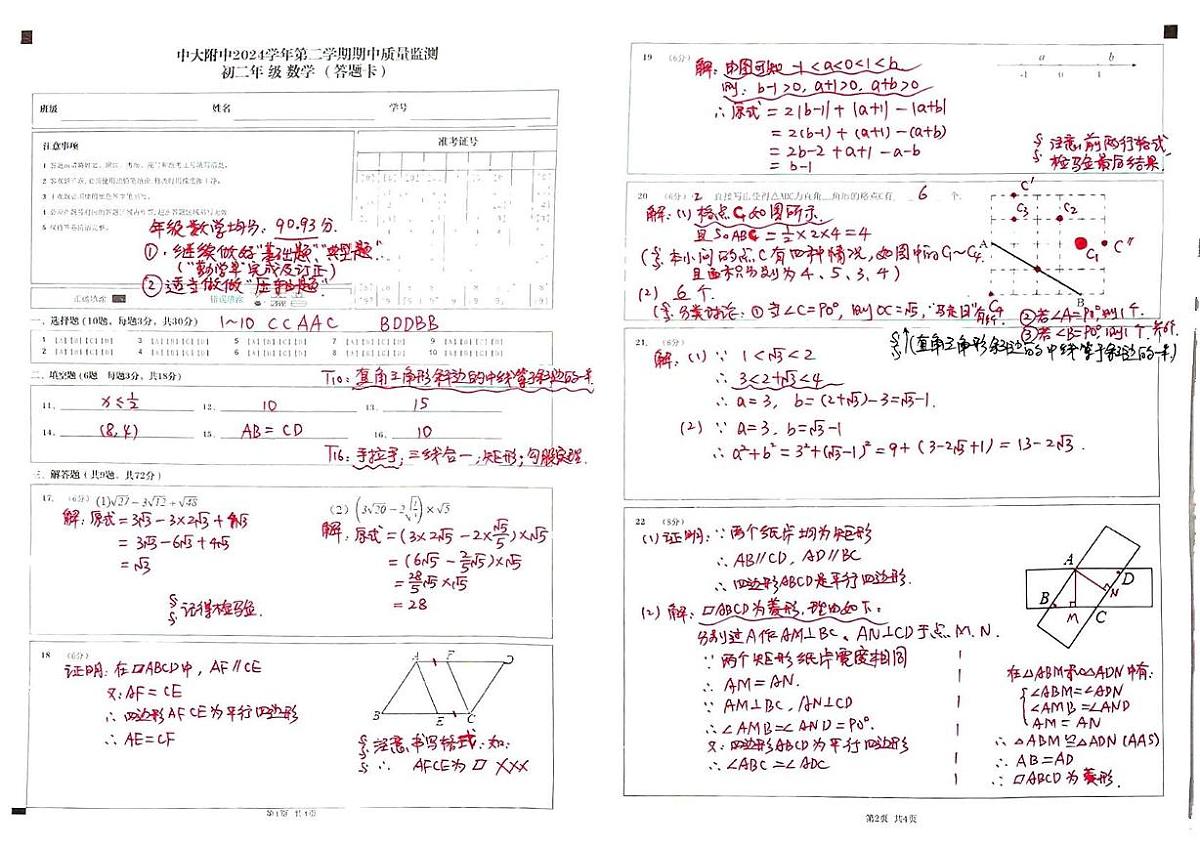 中大附中2024学年第二学期期中质量监测
初二年 级 数学 (答题卡)
班级 姓名 学号
注意事项
准考证号
年级数学均分: 90.93分.
①·继续做好"基础题""典型题".
("勤学单"完成及订正)
②适当做做"压轴题".
正确填涂 错误填涂
一. 选择题 (10题, 每题3分, 共30分) 1~10 CCAAC BDDBB
1 [A][B][C][D] 3 [A][B][C][D] 5 [A][B][C][D] 7 [A][B][C][D] 9 [A][B][C][D]
2 [A][B][C][D] 4 [A][B][C][D] 6 [A][B][C][D] 8 [A][B][C][D] 10 [A][B][C][D]
二. 填空题 (6题 每题3分, 共18分) T10: 直角三角形斜边的中线等于斜边的一半.
11. x≤1/2 12. 10 13. 15
14. (8,4) 15. AB=CD 16. 10
T16: 手拉手, 三线合一; 矩形; 勾股定理.
三. 解答题 (共9题, 共72分)
17. (6分) (1)√27-3√12+√48
解: 原式=3√3-3×2√3+4√3
=3√3-6√3+4√3
=√3
记得检验.
(2) (3√20-2√(1/5))×√5
解: 原式=(3×2√5-2×√5/5)×√5
=(6√5-2/5√5)×√5
=28/5√5×√5
=28
18 (6分)
证明: 在▱ABCD中, AF∥CE
又∵AF=CE
∴四边形AFCE为平行四边形
∴AE=CF
A F D
B E C
注意书写格式. 如:
∴ AFCE为▱ XXX
第1页 共4页
19 (6分)
解: 由图可知 -1<a<0<1<b
则: b-1>0, a+1>0, a+b>0
∴原式=2|b-1|+|a+1|-|a+b|
=2(b-1)+(a+1)-(a+b)
=2b-2+a+1-a-b
=b-1
a b
-1 0 1
注意前两行格式
检验最后结果.
20 (6分) 2 直接写出使得△ABC为直角三角形的格点C有 6 个.
解: (1) 格点C₁如图所示.
且S△ABC₁=1/2×2×4=4
(本小问的点C有四种情况, 如图中的C₁~C₄.
且面积分别为4、5、3、4)
(2) 6个.
(分类讨论: ①当∠C=90°, 则OC=√5, "马走日"有4个.
②若∠A=90°, 则1个.
③若∠B=90°, 则1个. 共6个.
(直角三角形斜边的中线等于斜边的一半)
C' C₃ C₂ C₁ C'' A B C₄
21. (6分)
解: (1) ∵ 1<√3<2
∴ 3<2+√3<4
∴ a=3, b=(2+√3)-3=√3-1.
(2) ∵ a=3, b=√3-1
∴ a²+b²=3²+(√3-1)²=9+(3-2√3+1)=13-2√3.
22 (8分)
(1) 证明: ∵两个纸片均为矩形
∴ AB∥CD, AD∥BC
∴ 四边形ABCD是平行四边形.
(2) 解: ▱ABCD为菱形, 理由如下:
分别过A作AM⊥BC、AN⊥CD于点M、N.
∵两个矩形纸片宽度相同
∴ AM=AN.
∵ AM⊥BC, AN⊥CD
∴∠AMB=∠AND=90°.
又∵四边形ABCD为平行四边形
∴∠ABC=∠ADC
A D B N M C
在△ABM和△ADN中有:
∠ABM=∠ADN
∠AMB=∠AND
AM=AN
∴△ABM≌△ADN (AAS)
∴ AB=AD
∴ ▱ABCD为菱形.
第2页 共4页